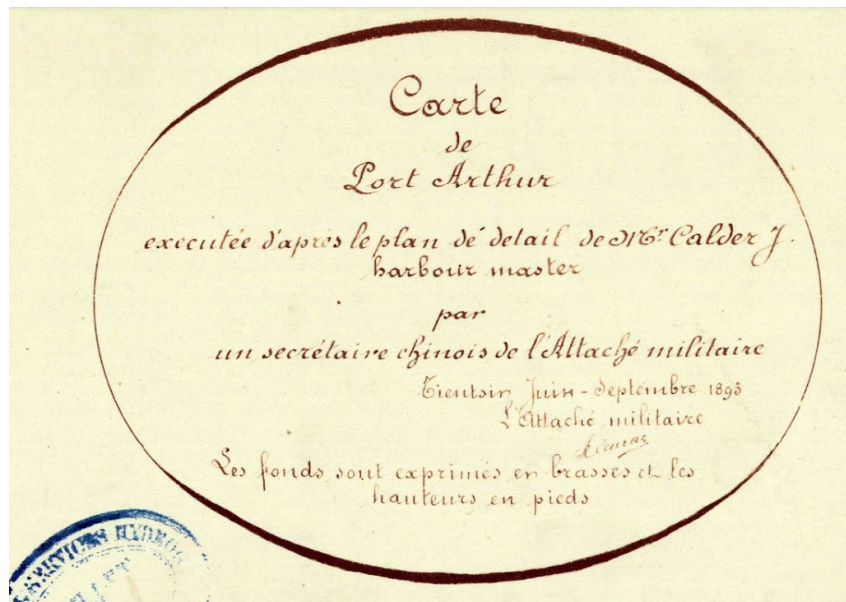 Carte
de
Port Arthur
executée d'après le plan dé détail de Mr. Calder J.
harbour master
par
un secrétaire chinois de l'Attaché militaire
Tientsin Juin - Septembre 1893
L'Attaché militaire
Les fonds sont exprimés en brasses et les
hauteurs en pieds
SERVICES HYDROG